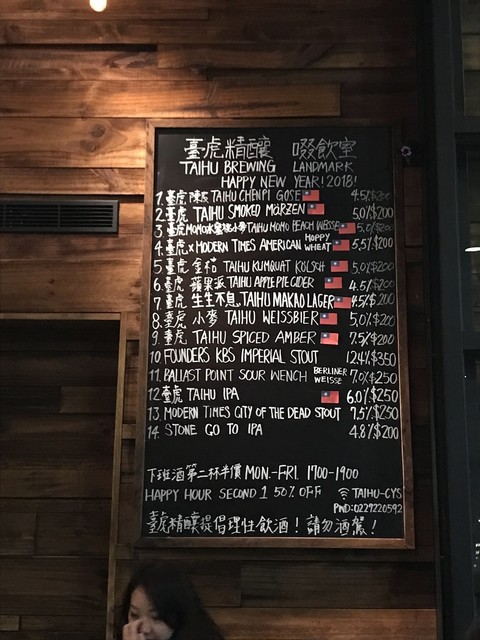 臺虎精釀 啜飲室
TAIHU BREWING LANDMARK
HAPPY NEW YEAR! 2018!
1. 臺虎 陳皮 TAIHU CHENPI GOSE 4.5%$200
2. 臺虎 TAIHU SMOKED MÄRZEN 5.0%$200
3. 臺虎 TAIHU MOMO PEACH WEISSE 5.0%$200
4. 臺虎 x MODERN TIMES AMERICAN HOPPY WHEAT 5.5%$200
5 臺虎 金桔 TAIHU KUMQUAT KÖLSCH 5.0%$200
6. 臺虎 蘋果派 TAIHU APPLE PIE CIDER 4.5%$200
7. 臺虎 生生不息 TAIHU MAKAO LAGER 4.5%$200
8. 臺虎 小麥 TAIHU WEISSBIER 5.0%$200
9. 臺虎 TAIHU SPICED AMBER 7.5%$200
10 FOUNDERS KBS IMPERIAL STOUT 12.4%$350
11. BALLAST POINT SOUR WENCH BERLINER WEISSE 7.0%$250
12. 臺虎 TAIHU IPA 6.0%$250
13. MODERN TIMES CITY OF THE DEAD STOUT 7.5%$250
14. STONE GO TO IPA 4.8%$200
下班酒第二杯半價 MON.-FRI. 1700-1900
HAPPY HOUR SECOND 1 50% OFF TAIHU-CYS
PWD:0227220592
臺虎精釀提倡理性飲酒！請勿酒駕！